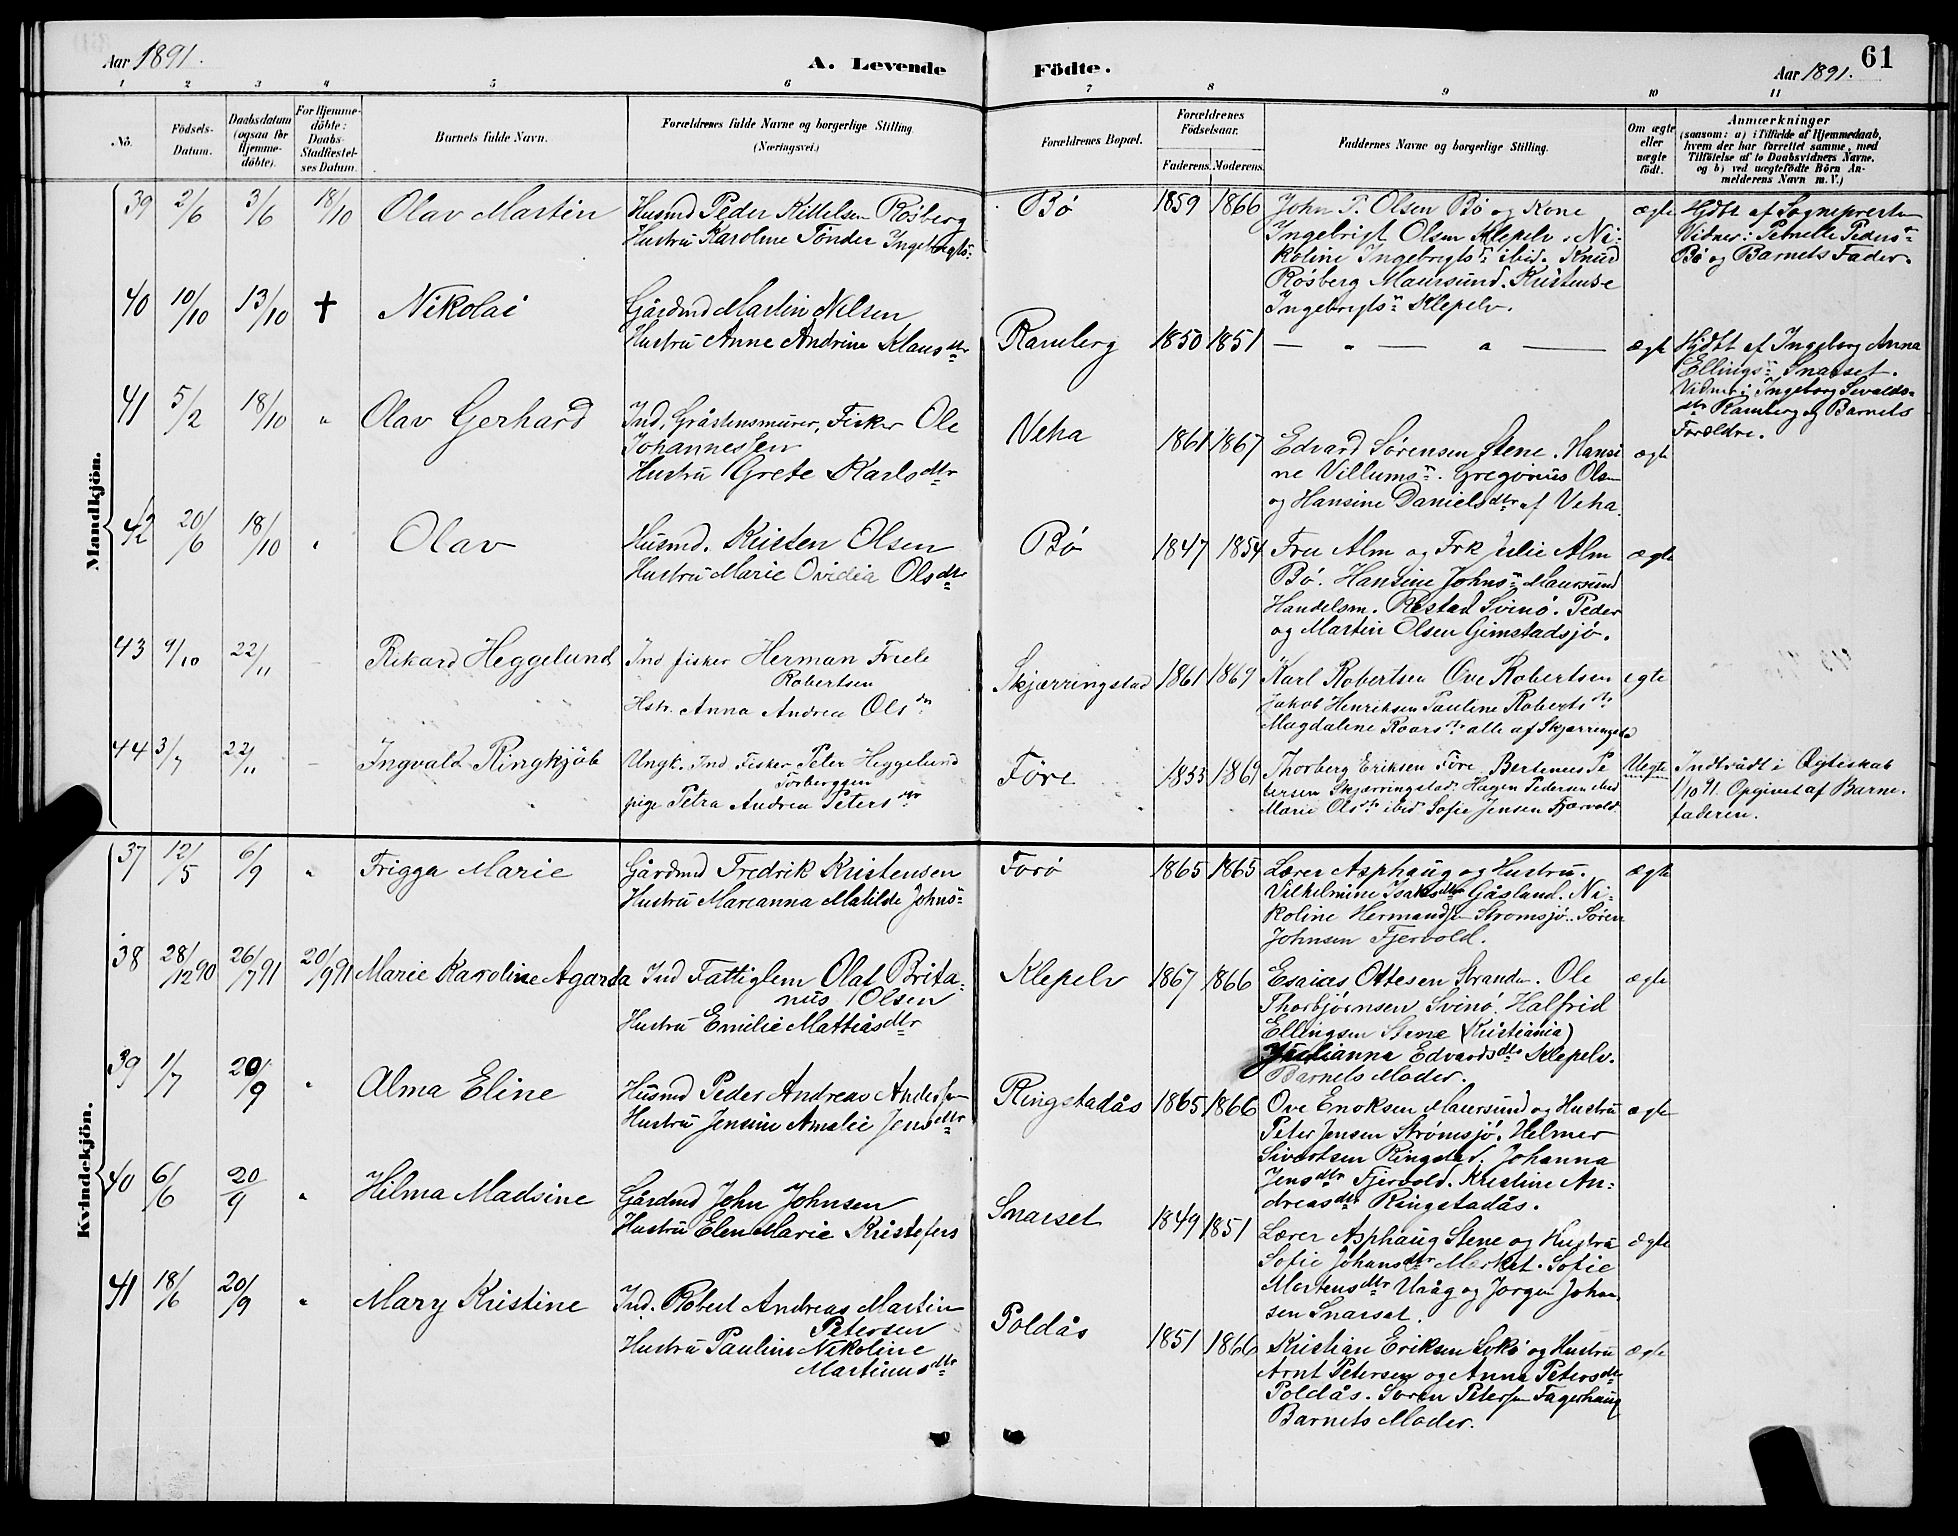 Aar 1891.
A. Levende
Födte.
61
Aar 1891.
1 2 3 4 5 6 7 8 9 10 11
No.
Födsels-
Datum.
Daabsdatum
(ogsaa for
Hjemme-
döbte).
For Hjemme-
döbte:
Daabs-
Stadfæstel-
ses Datum.
Barnets fulde Navn.
Forældrenes fulde Navne og borgerlige Stilling.
(Næringsvei.)
Forældrenes Bopæl.
Forældrenes
Födselsaar.
Faderens. Moderens.
Faddernes Navne og borgerlige Stilling.
Om ægte
eller
uægte
födt.
Anmærkninger
(saasom: a) i Tilfælde af Hjemmedaab,
hvem der har forrettet samme, med
Tilföielse af to Daabsvidners Navne,
og b) ved uægtefödte Börn An-
melderens Navn m. V.)
Mandkjön.
39 2/6 3/6 18/10 Olav Martin
Husmd Peder Kittelsen Røsberg
Hustru Karoline Tønder Ingebregts:
Bø 1859 1866
John P. Olsen Bø og Kone
Ingebrigt Olsen Klepelv. Ni-
koline Ingebrigts- ibid. Knud
Røsberg Maursund. Kristense
Ingebrigts- Klepelv.
ægte
Hjdbt af Sogneprest
Vidner: Petnelle Peders-
Bø og Barnets Fader.
40 10/10 13/10 † Nikolai
Gårdmd Martin Nilsen
Hustru Anne Andrine Klausdtr
Ramberg 1850 1851 — " — " —
ægte
Hjdbt af Ingeborg Anna
Ellings- Snarset.
Vidner: Ingeborg Sevalds-
dtr Ramberg og Barnets
Forældre.
41 5/2 18/10 " Olav Gerhard
Ind, Gråstensmurer, Fisker Ole
Johannessen
Hustru Grete Karlsdtr
Veha 1861 1867
Edvard Sørensen Stene. Hansi
ne Villums-. Gregorius Olsen
og Hansine Danielsdtr af Veha.
ægte
42 20/6 18/10 " Olav
Husmd. Kristen Olsen
Hustru Marie Ovidia Olsdtr
Bø 1847 1854
Fru Alm og Frk Julie Alm
Bø. Hansine Johns- Maursund
Handelsm. Restad Svinø. Peder
og Martin Olsen Gimstadsjø.
ægte
43 9/10 22/11 – Rikard Heggelund
Ind fisker Herman Friele
Robertsen
Hstr. Anna Andrea Olsdtr
Skjærringstad 1861 1869
Karl Robertsen Ove Robertsen
Jakob Henriksen Pauline Robertsdtr
Magdalene Roarsdtr alle af Skjærringsta
egte
44 3/7 22/11 – Ingvald Ringkjøb
Ungk. Ind Fisker Peter Heggelund
Torbergsen
pige Petra Andrea Petersdtr
Føre 1855 1869
Thorberg Eriksen Føre. Bertenus Pe
tersen Skjærringstad. Hagen Pedersen ibid
Marie Olsdtr ibid. Sofie Jensen Fjærvold.
Uegte
Indtrådt i Ægteskab
1/10 91. Opgivet af Barne-
faderen.
Kvindekjön.
37 12/5 6/9 " Frigga Marie
Gårdmd Fredrik Kristensen
Hustru Mareanna Matilde Johns-
Forø 1865 1865
Lærer Asphaug og Hustru.
Vilhelmine Isaksdtr Gåsland. Ni-
koline Hermandsen Strømsjø. Søren
Johnsen Fjervold.
ægte
38 28/12 90 26/7 91 20/9 91 Marie Karoline Agarda
Ind Fattiglem Olat Brita-
nus Olsen
Hustru Emilie Mattiasdtr
Klepelv 1867 1866
Esaias Ottesen Stranden. Ole
Thorbjørnsen Svinø. Halfrid
Ellingsen Stene (Kristiania)
Julianna Edvardsdtr Klepelv.
Barnets Moder.
ægte
39 1/7 20/9 " Alma Eline
Husmd Peder Andreas Andersen
Hustru Jensine Amalie Jensdtr
Ringstadås 1865 1866
Ove Enoksen Maursund og Hustru
Peter Jensen Strømsjø. Helmer
Sivertsen Ringstad. Johanna
Jensdtr Fjervold. Kristine An-
dreasdtr Ringstadås.
ægte
40 6/6 20/9 " Hilma Madsine
Gårdmd John Johnsen
Hustru Elen Marie Kristefers
Snarset 1849 1851
Lærer Asphaug Stene og Hustru
Sofie Johansdtr Mørket. Sofie
Mortensdtr Uråg og Jørgen Johan-
sen Snarset.
ægte
41 18/6 20/9 " Mary Kristine
Ind. Robert Andreas Martin
Petersen
Hustru Pauline Nikoline
Martinusdtr
Poldås 1851 1866
Kristian Eriksen Sokø og Hustru
Arnt Petersen og Anna Petersdtr
Poldås. Søren Petersen Fagerhaug
Barnets Moder.
ægte